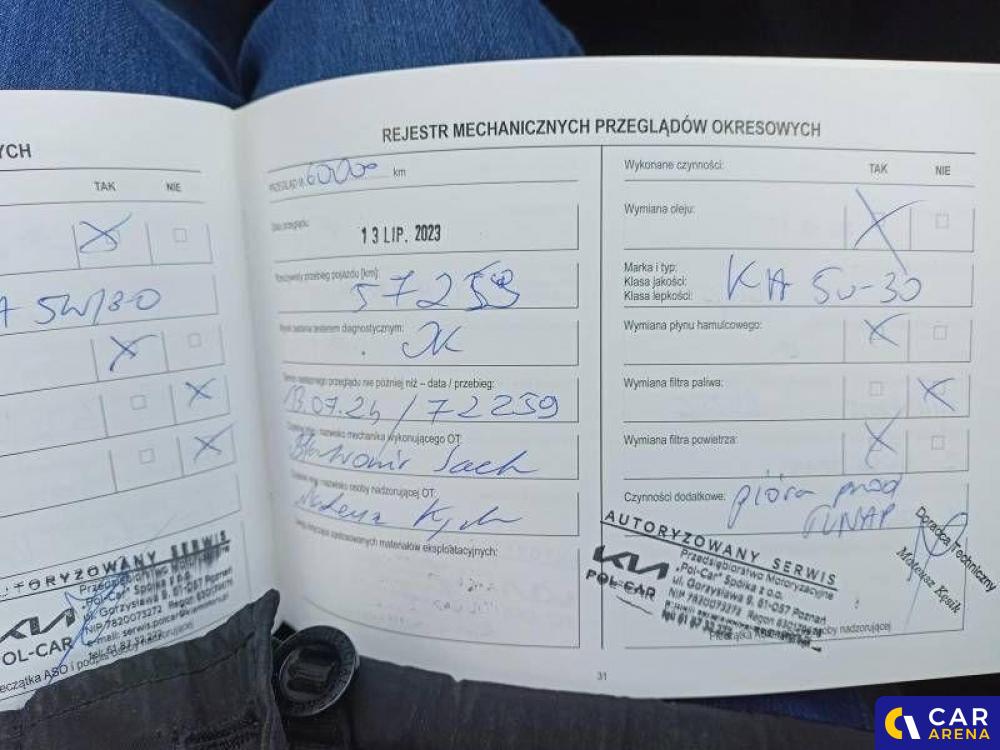 YCH
TAK NIE
A 5W/30
AUTORYZOWANY SERWIS
Przedsiębiorstwo
"Pol-Car" Spółka z o.o.
ul. Gorzysława 9, 61-057 Poznań
NIP 7820073272 Regon
e-mail: serwis.polcar
POL-CAR
pieczątka ASO i podpis osoby nadzorującej
REJESTR MECHANICZNYCH PRZEGLĄDÓW OKRESOWYCH
60000 km
Data przeglądu:
13 LIP. 2023
Rzeczywisty przebieg pojazdu [km]:
57259
Wynik badania testerem diagnostycznym:
OK
Termin następnego przeglądu nie później niż – data / przebieg:
13.07.24 / 72259
nazwisko mechanika wykonującego OT:
nazwisko osoby nadzorującej OT:
Uwagi dotyczące zastosowanych materiałów eksploatacyjnych:
Wykonane czynności: TAK NIE
Wymiana oleju:
Marka i typ:
Klasa jakości:
Klasa lepkości:
KIA 5W-30
Wymiana płynu hamulcowego:
Wymiana filtra paliwa:
Wymiana filtra powietrza:
Czynności dodatkowe: pióra przód
TUNAP
AUTORYZOWANY SERWIS
KIA
POL-CAR
Przedsiębiorstwo Motoryzacyjne
"Pol-Car" Spółka z o.o.
ul. Gorzysława 9, 61-057 Poznań
NIP 7820073272 Regon
Doradca Techniczny
Mateusz Kęsik
osoby nadzorującej
31
CAR
ARENA